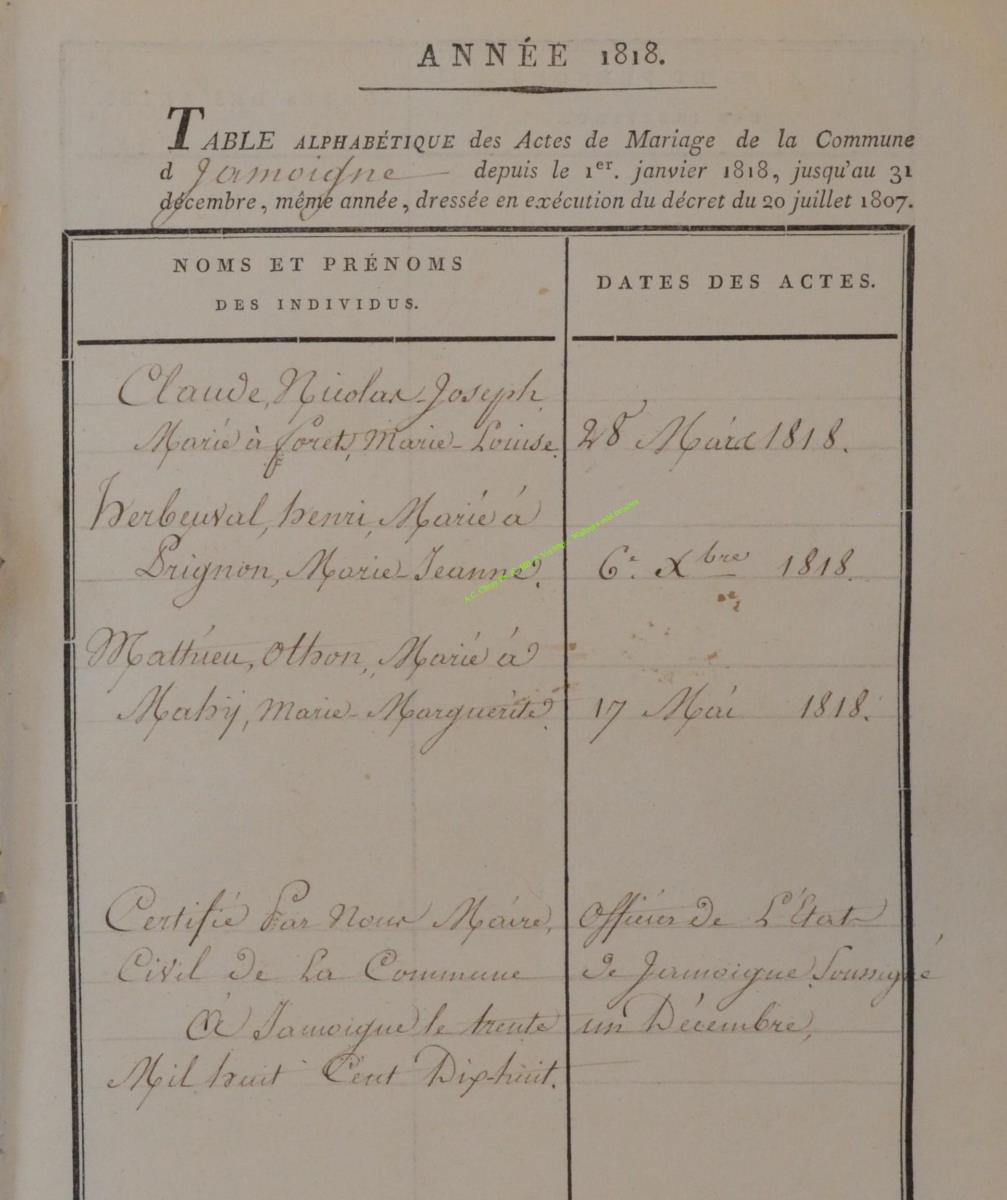 ANNÉE 1818.
TABLE ALPHABÉTIQUE des Actes de Mariage de la Commune
d Jamoigne depuis le 1er. janvier 1818, jusqu'au 31
décembre, même année, dressée en exécution du décret du 20 juillet 1807.
NOMS ET PRÉNOMS
DES INDIVIDUS.
DATES DES ACTES.
Claude, Nicolas-Joseph
Marié à foret, Marie-Louise. 28 Márs 1818.
herbeuval, henri, Marié á
Prignon, Marie-Jeanne. 6e. Xbre 1818.
Mathieu, Othon, Marié á
Mahÿ, Marie-Marguerite. 17 Mái 1818.
Certifié Par Nous Máire, Officier de L'État
Civil de La Commune de Jamoigne Soussigné
Á Jamoigne le trente un Décembre,
Mil huit Cent Dix-huit.